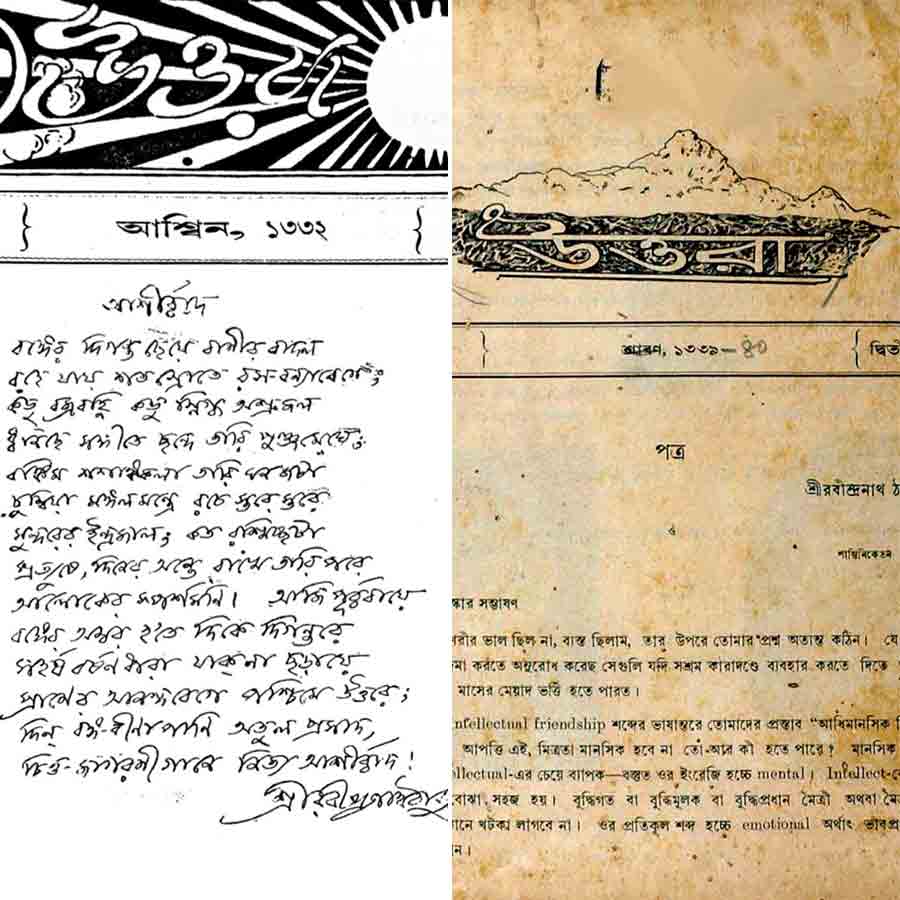 উত্তরা
আশ্বিন, ১৩৩২
আশীর্ব্বাদ
বঙ্গের দিগন্ত ছেয়ে বাণীর বাদল
বহে যায় শতস্রোতে রস-বন্যাবেগে;
কভু বজ্রবহ্নি কভু স্নিগ্ধ অশ্রুজল
ধ্বনিছে সঙ্গীতে ছন্দে তারি পুঞ্জমেঘে;
বঙ্কিম শশাঙ্ককলা তারি ঘন জটা
চুম্বিয়া মঙ্গলমন্ত্রে রচে স্তরে স্তরে
সুন্দরের ইন্দ্রজাল; কত রশ্মিচ্ছটা
প্রত্যুষে, দিনের অন্তে রাখে তারি পরে
আলোকের স্পর্শমণি। আজি পূর্ব্ববায়ে
বঙ্গের অম্বর হতে দিকে দিগন্তরে
সহর্ষ বর্ষণ ধারা যাক্‌ না ছড়ায়ে
প্রাণের আনন্দবেগে পশ্চিমে উত্তরে;
দিল বঙ্গ-বীণাপাণি অতুল প্রসাদ,
চিত্ত-জাগরণী গানে নিত্য আশীর্ব্বাদ!
শ্রীরবীন্দ্রনাথ ঠাকুর
উত্তরা
শ্রাবণ, ১৩৩৯-৪০
দ্বিতী
পত্র
শ্রীরবীন্দ্রনাথ ঠ
ওঁ
শান্তিনিকেতন
স্কার সম্ভাষণ
শরীর ভাল ছিল না, ব্যস্ত ছিলাম, তার উপরে তোমার প্রশ্ন অত্যন্ত কঠিন। যে
মা করতে অনুরোধ করেছ সেগুলি যদি সশ্রম কারাদণ্ডে ব্যবহার করতে দিতে
মাসের মেয়াদ ভর্ত্তি হতে পারত।
Intellectual friendship শব্দের ভাষান্তরে তোমাদের প্রস্তাব “আধিমানসিক
আপত্তি এই, মিত্রতা মানসিক হবে না তো-আর কী হতে পারে? মানসিক
ellectual-এর চেয়ে ব্যাপক—বস্তুত ওর ইংরেজি হচ্চে mental। Intellect-
বোঝা সহজ হয়। বুদ্ধিগত বা বুদ্ধিমূলক বা বুদ্ধিপ্রধান মৈত্রী অথবা মৈ
নে খটকা লাগবে না। ওর প্রতিকূল শব্দ হচ্চে emotional অর্থাৎ ভাবপ্র
ন।